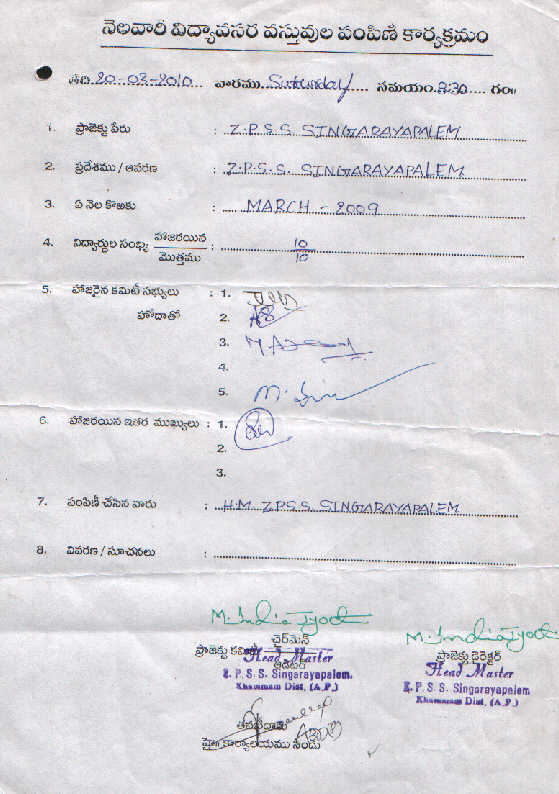 నెలవారీ విద్యావసర వస్తువుల పంపిణీ కార్యక్రమం
తేది 20-03-2010 వారము Saturday సమయం 3:30 గం॥
1. ప్రాజెక్టు పేరు : Z.P.S.S SINGARAYAPALEM
2. ప్రదేశము / ఆవరణ : Z.P.S.S. SINGARAYAPALEM
3. ఏ నెల కొఱకు : MARCH - 2009
4. విద్యార్థుల సంఖ్య హాజరయిన / మొత్తము : 10 / 10
5. హాజరైన కమిటీ సభ్యులు : 1.
హోదాతో 2.
3.
4.
5.
6. హాజరయిన ఇతర ముఖ్యులు : 1.
2.
3.
7. పంపిణీ చేసిన వారు : H.M. Z.P.S.S SINGARAYAPALEM
8. వివరణ / సూచనలు :
M. India Jyothi
ప్రాజెక్టు కమిటీ ఛైర్మెన్
Head Master
Z. P. S. S. Singarayapalem.
Khammam Dist, (A.P.)
M. India Jyothi
ప్రాజెక్టు డైరెక్టర్
Head Master
Z. P. S. S. Singarayapalem
Khammam Dist, (A.P.)